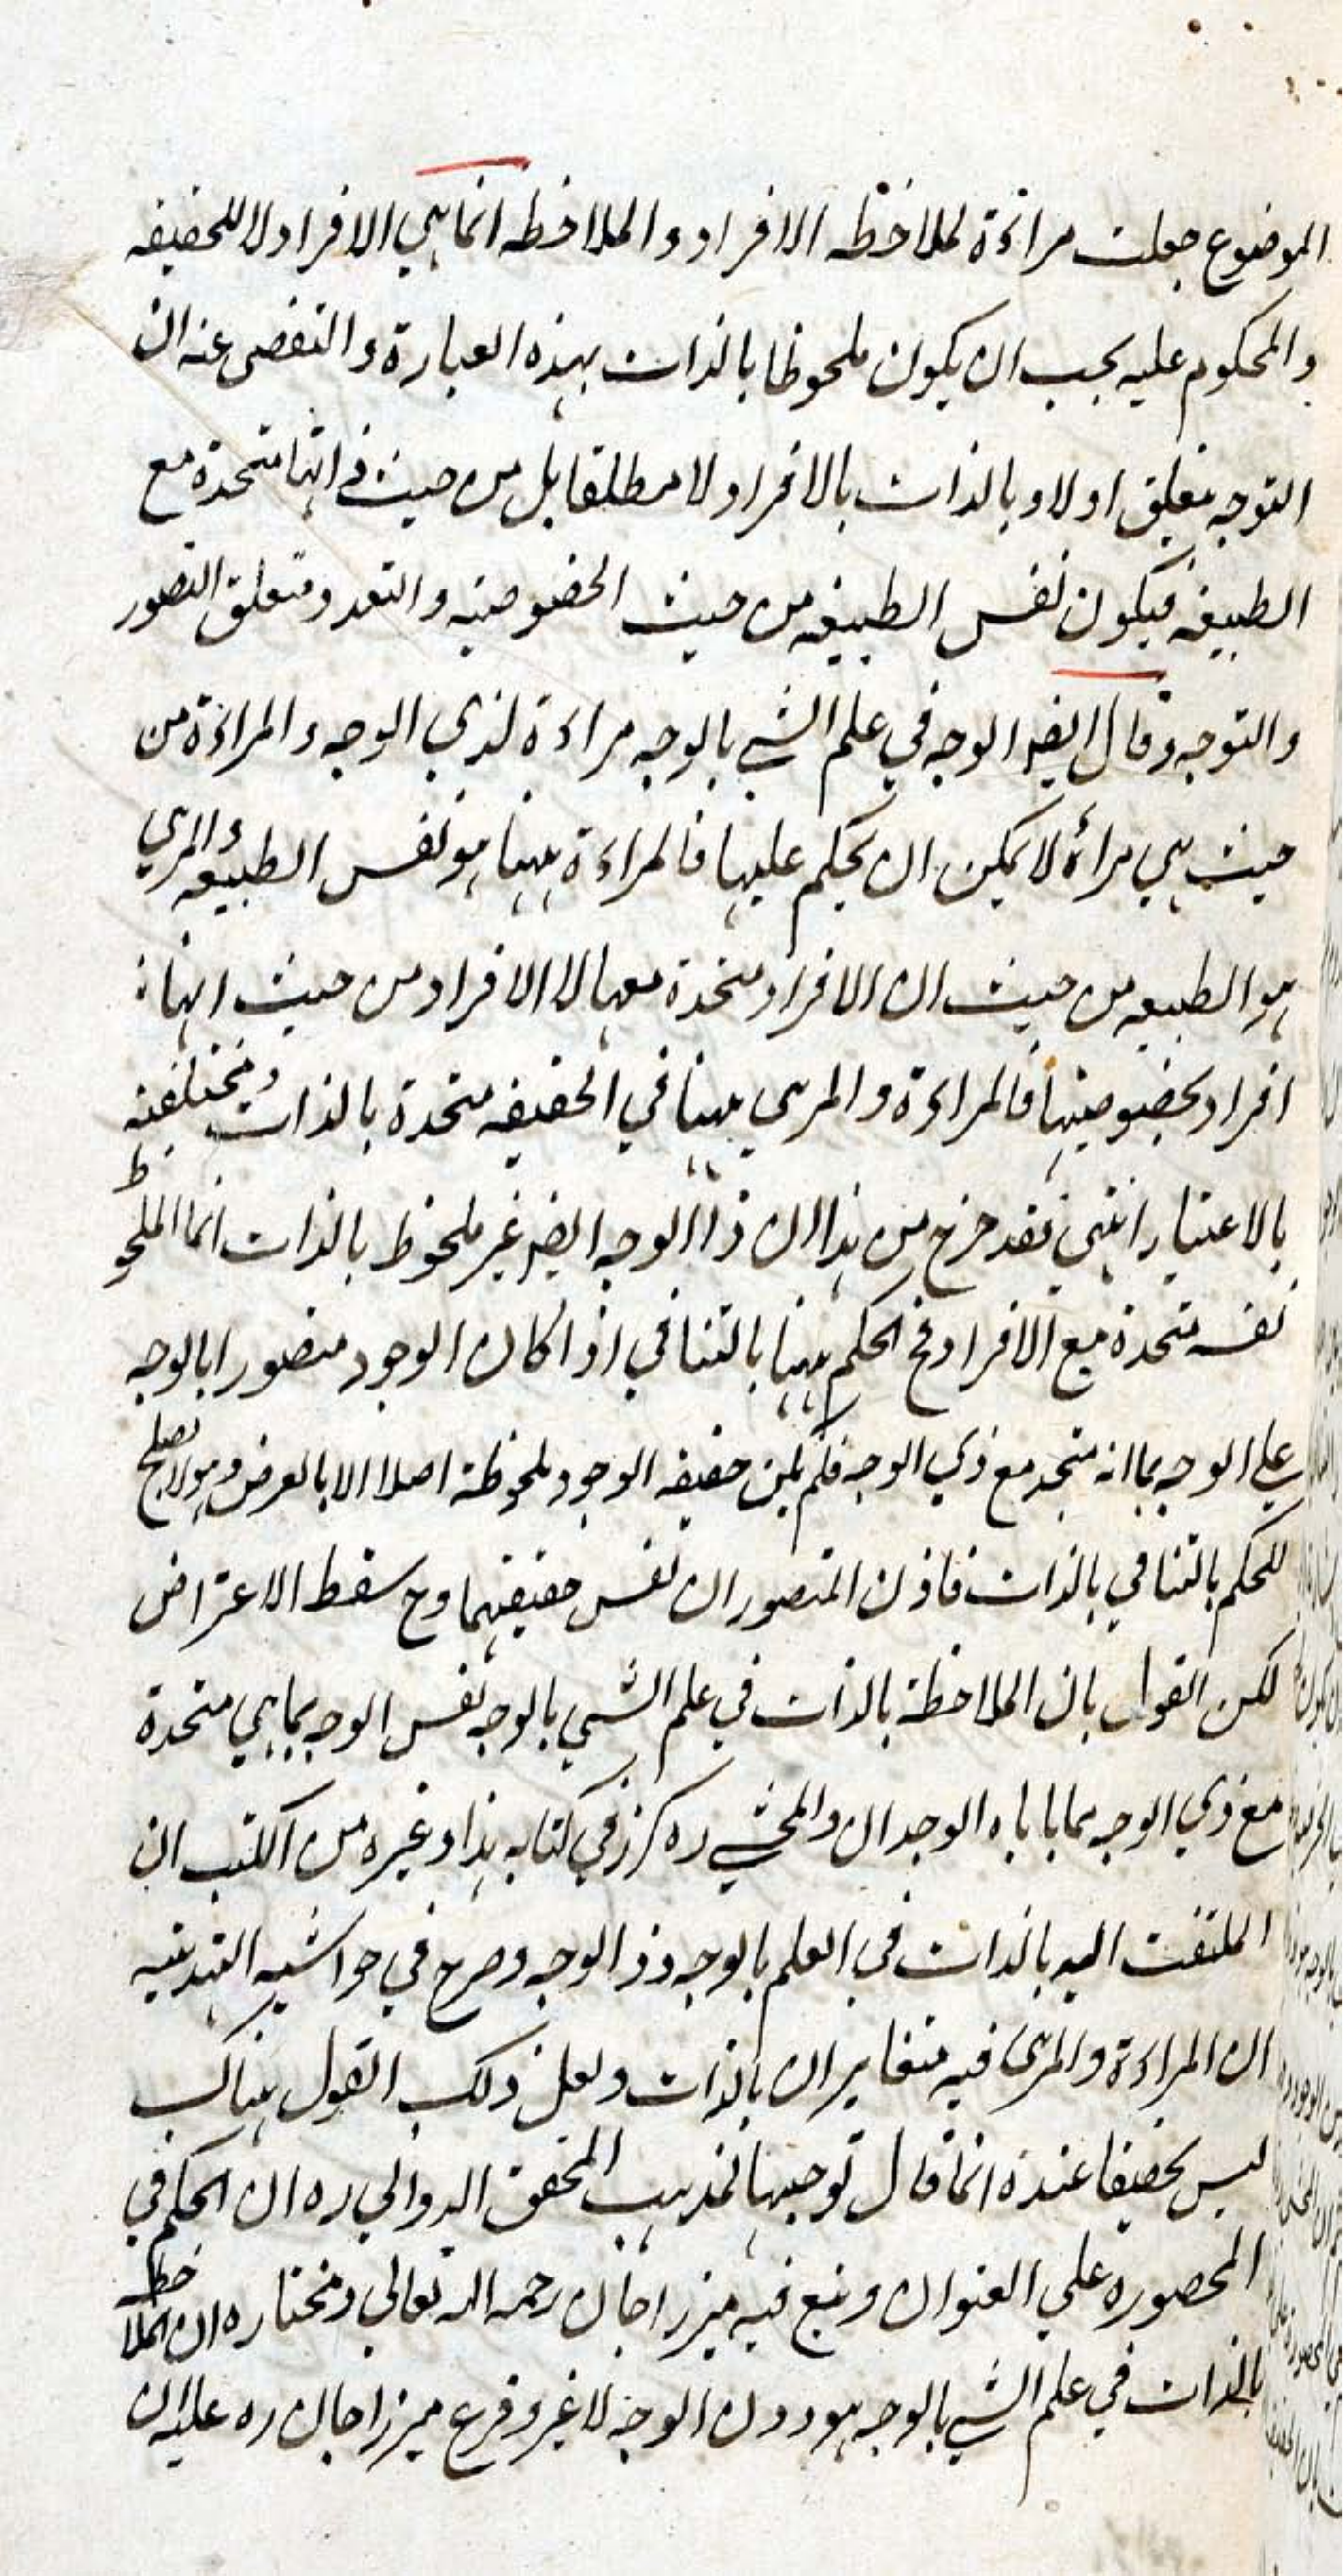 الموضوع جعلت مراءة لملاخظه الافراد و الملاخظه انما هي الافراد لا للحقيقه
والمحكوم عليه يجب ان يكون ملحوظا بالذات بهذه العبارة و التفصى عنه ان
التوجه تعلق اولا و بالذات بالافراد لا مطلقا بل من حيث انها متحدة مع
الطبيعه فيكون نفس الطبيعه من حيث الخصوصيه و التعدد متعلق التصور
والتوجه وقال ايضا الوجه في علم الشي بالوجه مراءة لذي الوجه و المراءة من
حيث هي مرأة لا يمكن ان يحكم عليها فالمراءة ههنا هو نفس الطبيعه والمرئي
هو الطبيعه من حيث ان الافراد متحدة معها لا الافراد من حيث انها
افراد بخصوصيتها فالمراءة و المرئى ههنا في الحقيقه متحدة بالذات و مختلفة
بالاعتبار انتهى فقد خرج من هذا ان ذا الوجه ايضا غير ملحوظ بالذات انما الملحوظ
نفسه متحدة مع الافراد فح الحكم ههنا بالتنافي اذا كان الوجود متصورا بالوجه
علي الوجه بما انه متحد مع ذي الوجه فلم يكن حقيقه الوجود ملحوظة اصلا الا بالعرض و هو لا يصلح
للحكم بالتنافي بالذات فاذن المتصوران نفس حقيقتهما وح سقط الاعتراض
لكن القول بان الملاحظة بالذات في علم الشي بالوجه نفس الوجه بما هي متحدة
مع ذي الوجه مما ياباه الوجدان و المحشي ره كرر في كتابه هذا و غيره من الكتب ان
الملتفت اليه بالذات في العلم بالوجه ذو الوجه و صرح في حواشيه التهذيبيه
ان المراءة و المرئى فيه متغايران بالذات و لعل ذلك القول هناك
ليس تحقيقا عنده انما قال توجيها لمذهب المحقق الدواني ره ان الحكم في
المحصوره علي العنوان و تبع فيه ميرزا جان رحمه الله تعالي و مختاره ان الملاحظ
بالذات في علم الشي بالوجه هو دون الوجه لا غير و فرع ميرزا جان ره عليه ان